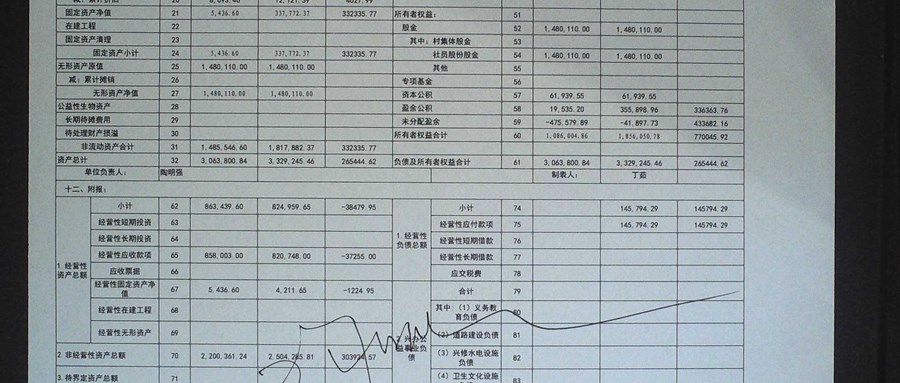 固定资产净值 21 5,436.60 337,772.37 332335.77 所有者权益： 51
在建工程 22 股金 52 1,480,110.00 1,480,110.00
固定资产清理 23 其中：村集体股金 53
固定资产小计 24 5,436.60 337,772.37 332335.77 社员股份股金 54 1,480,110.00 1,480,110.00
无形资产原值 25 1,480,110.00 1,480,110.00 其他 55
减：累计摊销 26 专项基金 56
无形资产净值 27 1,480,110.00 1,480,110.00 资本公积 57 61,939.55 61,939.55
公益性生物资产 28 盈余公积 58 19,535.20 355,898.96 336363.76
长期待摊费用 29 未分配盈余 59 -475,579.89 -41,897.73 433682.16
待处理财产损溢 30 所有者权益合计 60 1,086,004.86 1,856,050.78 770045.92
非流动资产合计 31 1,485,546.60 1,817,882.37 332335.77
资产总计 32 3,063,800.84 3,329,245.46 265444.62 负债及所有者权益合计 61 3,063,800.84 3,329,245.46 265444.62
单位负责人： 陶明强 制表人： 丁茹
十二、附报：
1.经营性资产总额 小计 62 863,439.60 824,959.65 -38479.95 1.经营性负债总额 小计 74 145,794.29 145794.29
经营性短期投资 63 经营性应付款项 75 145,794.29 145794.29
经营性长期投资 64 经营性短期借款 76
经营性应收款项 65 858,003.00 820,748.00 -37255.00 经营性长期借款 77
应收票据 66 应交税费 78
经营性固定资产净值 67 5,436.60 4,211.65 -1224.95 合计 79
经营性在建工程 68 其中：（1）义务教育负债 80
经营性无形资产 69 （2）道路建设负债 81
2.非经营性资产总额 70 2,200,361.24 （3）兴修水电设施负债 82
3.待界定资产总额 71 （4）卫生文化设施 83